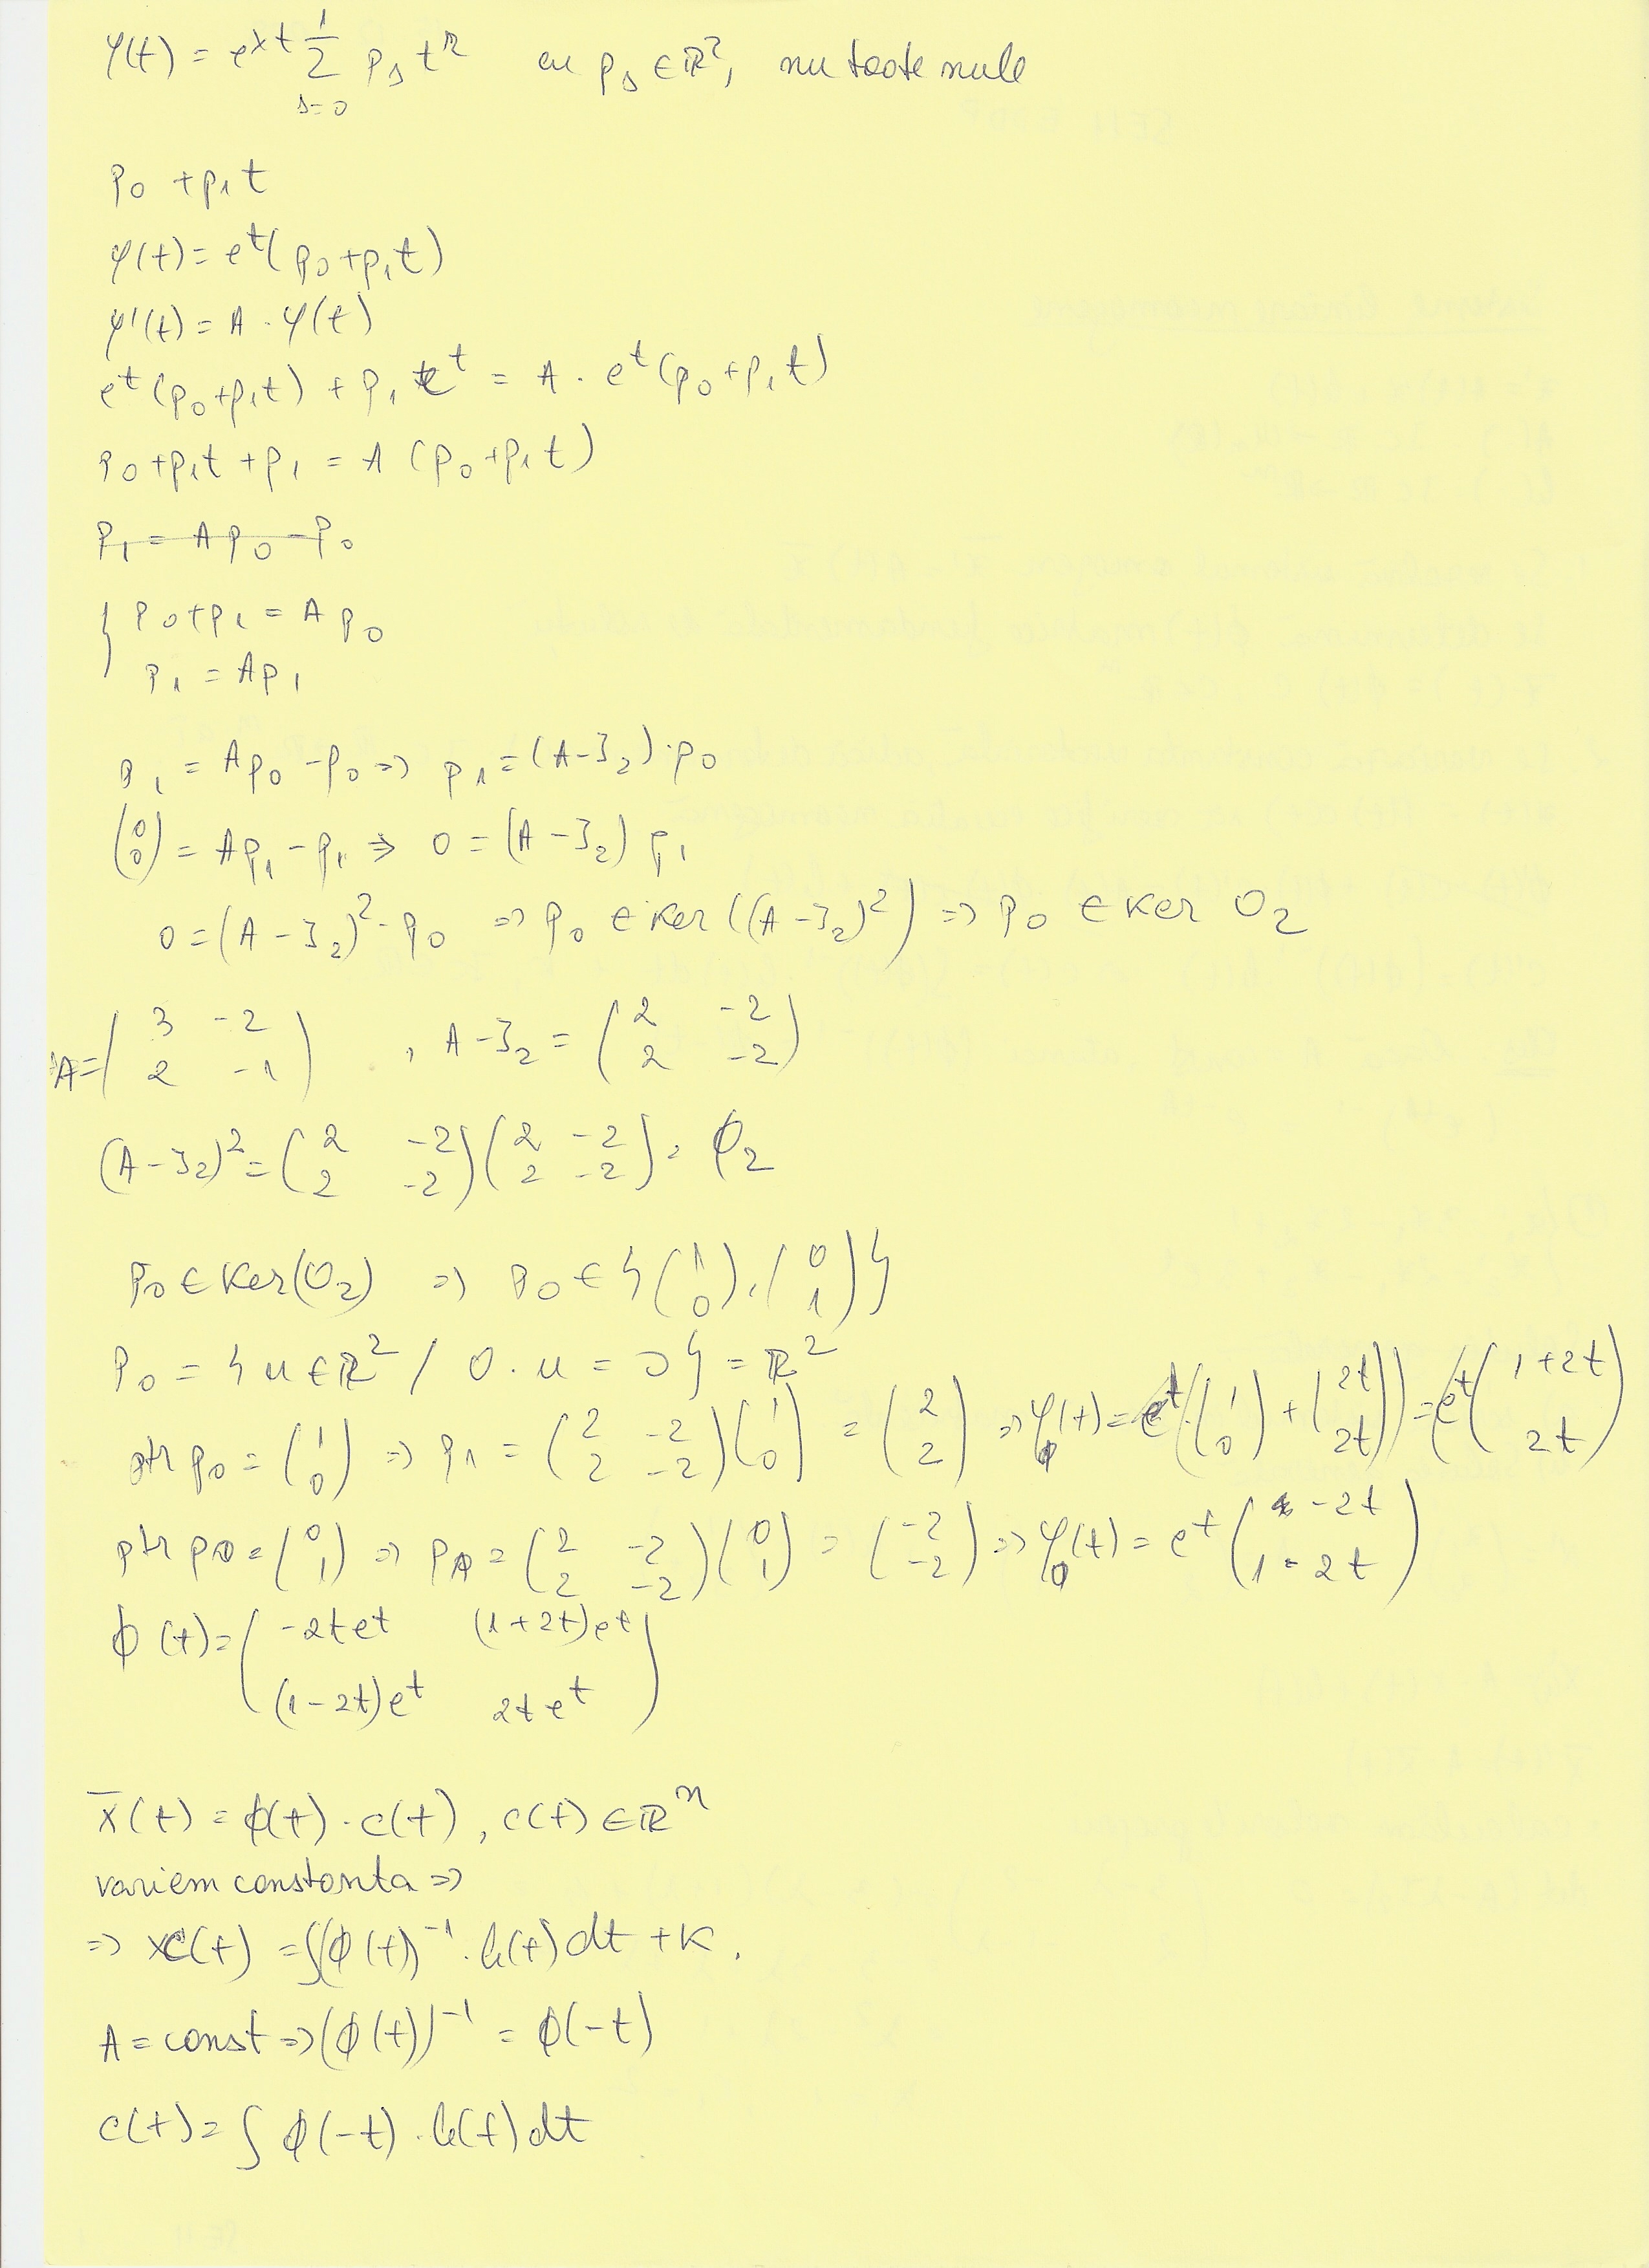 φ(t) = e^{λt} Σ_{s=0}^{1} p_s t^s cu p_s ∈ ℝ², nu toate nule
p_0 + p_1 t
φ(t) = e^t (p_0 + p_1 t)
φ'(t) = A · φ(t)
e^t (p_0 + p_1 t) + p_1 e^t = A · e^t (p_0 + p_1 t)
p_0 + p_1 t + p_1 = A (p_0 + p_1 t)
p_1 = A p_0 - p_0
{ p_0 + p_1 = A p_0
p_1 = A p_1
p_1 = A p_0 - p_0 ⇒ p_1 = (A - I_2) · p_0
(0 0) = A p_1 - p_1 ⇒ 0 = (A - I_2) p_1
0 = (A - I_2)² · p_0 ⇒ p_0 ∈ Ker((A - I_2)²) ⇒ p_0 ∈ Ker O_2
A = (3 -2 ; 2 -1) , A - I_2 = (2 -2 ; 2 -2)
(A - I_2)² = (2 -2 ; 2 -2)(2 -2 ; 2 -2) = O_2
p_0 ∈ Ker(O_2) ⇒ p_0 ∈ {(1 ; 0), (0 ; 1)}
p_0 = {u ∈ ℝ² / 0 · u = 0} = ℝ²
ptr p_0 = (1 ; 0) ⇒ p_1 = (2 -2 ; 2 -2)(1 ; 0) = (2 ; 2) ⇒ φ_0(t) = e^t((1 ; 0) + (2t ; 2t)) = e^t(1+2t ; 2t)
ptr p_0 = (0 ; 1) ⇒ p_1 = (2 -2 ; 2 -2)(0 ; 1) = (-2 ; -2) ⇒ φ_0(t) = e^t(-2t ; 1-2t)
ϕ(t) = (-2te^t (1+2t)e^t ; (1-2t)e^t 2te^t)
x̄(t) = ϕ(t) · c(t), c(t) ∈ ℝ^n
variem constanta ⇒
⇒ c(t) = ∫(ϕ(t))^{-1} · b(t) dt + K.
A = const ⇒ (ϕ(t))^{-1} = ϕ(-t)
c(t) = ∫ ϕ(-t) · b(t) dt